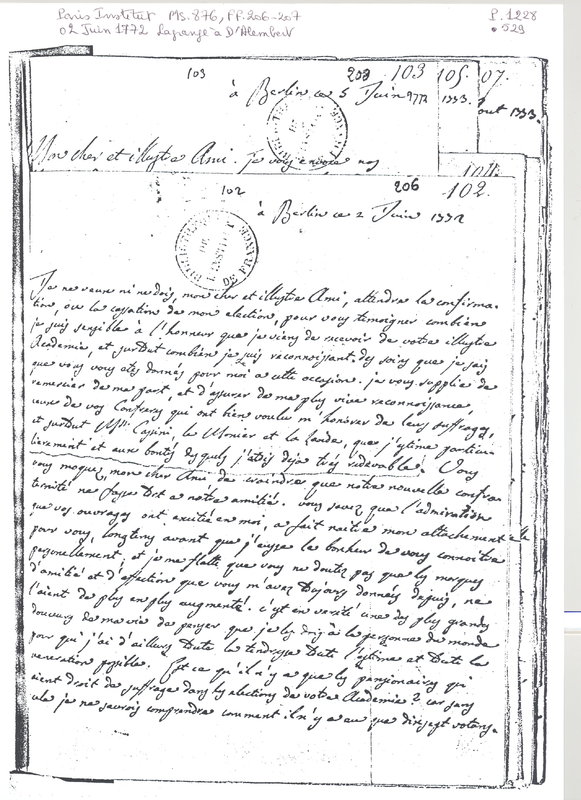 Paris Institut MS. 876, FF. 206-207
P. 1228
02 Juin 1772 Lagrange à D'Alembert
• 529
103
203
103
105
07.
à Berlin ce 5 Juin 1772
1773.
out 1773.
Mon cher et illustre Ami. je vous envoie nos
104
102
206
102.
à Berlin ce 2 Juin 1772
BIBLIOTHEQUE DE FRANCE
Je ne veux ni ne dois, mon cher et illustre Ami, attendre la confirma-
tion, ou la cassation de mon election, pour vous temoigner combien
je suis sensible à l'honneur que je viens de recevoir de votre illustre
Academie, et surtout combien je suis reconnoissant des soins que je sais
que vous vous etes donnés pour moi a cette occasion. je vous supplie de
remercier de ma part, et d'assurer de ma plus vive reconnoissance,
ceux de vos Confreres qui ont bien voulu m'honorer de leurs suffrages,
et surtout Mrs. Cassini, le Monier et la Lande, que j'estime particu-
lierement et aux bontés desquels j'étois deja très redevable. Vous
vous moquez, mon cher Ami, de craindre que notre nouvelle confra-
ternité ne fasse tort a notre amitié. vous savez que l'admiration
que vos ouvrages ont excitée en moi, a fait naitre mon attachement
pour vous, longtems avant que j'eusse le bonheur de vous connoitre
personellement, et je me flatte que vous ne doutez pas que les marques
d'amitié et d'affection que vous m'avez toujours données depuis, ne
l'aient de plus en plus augmenté. c'est en verité une des plus grandes
douceurs de ma vie de penser que je les dois à la personne du monde
pour qui j'ai d'ailleurs toute la tendresse toute l'estime et toute la
veneration possible. Est ce qu'il n'y a que les pensionaires qui
aient droit de suffrage dans les elections de votre Academie? car sans
cela je ne saurois comprendre comment il n'y a eu que dixsept votans.